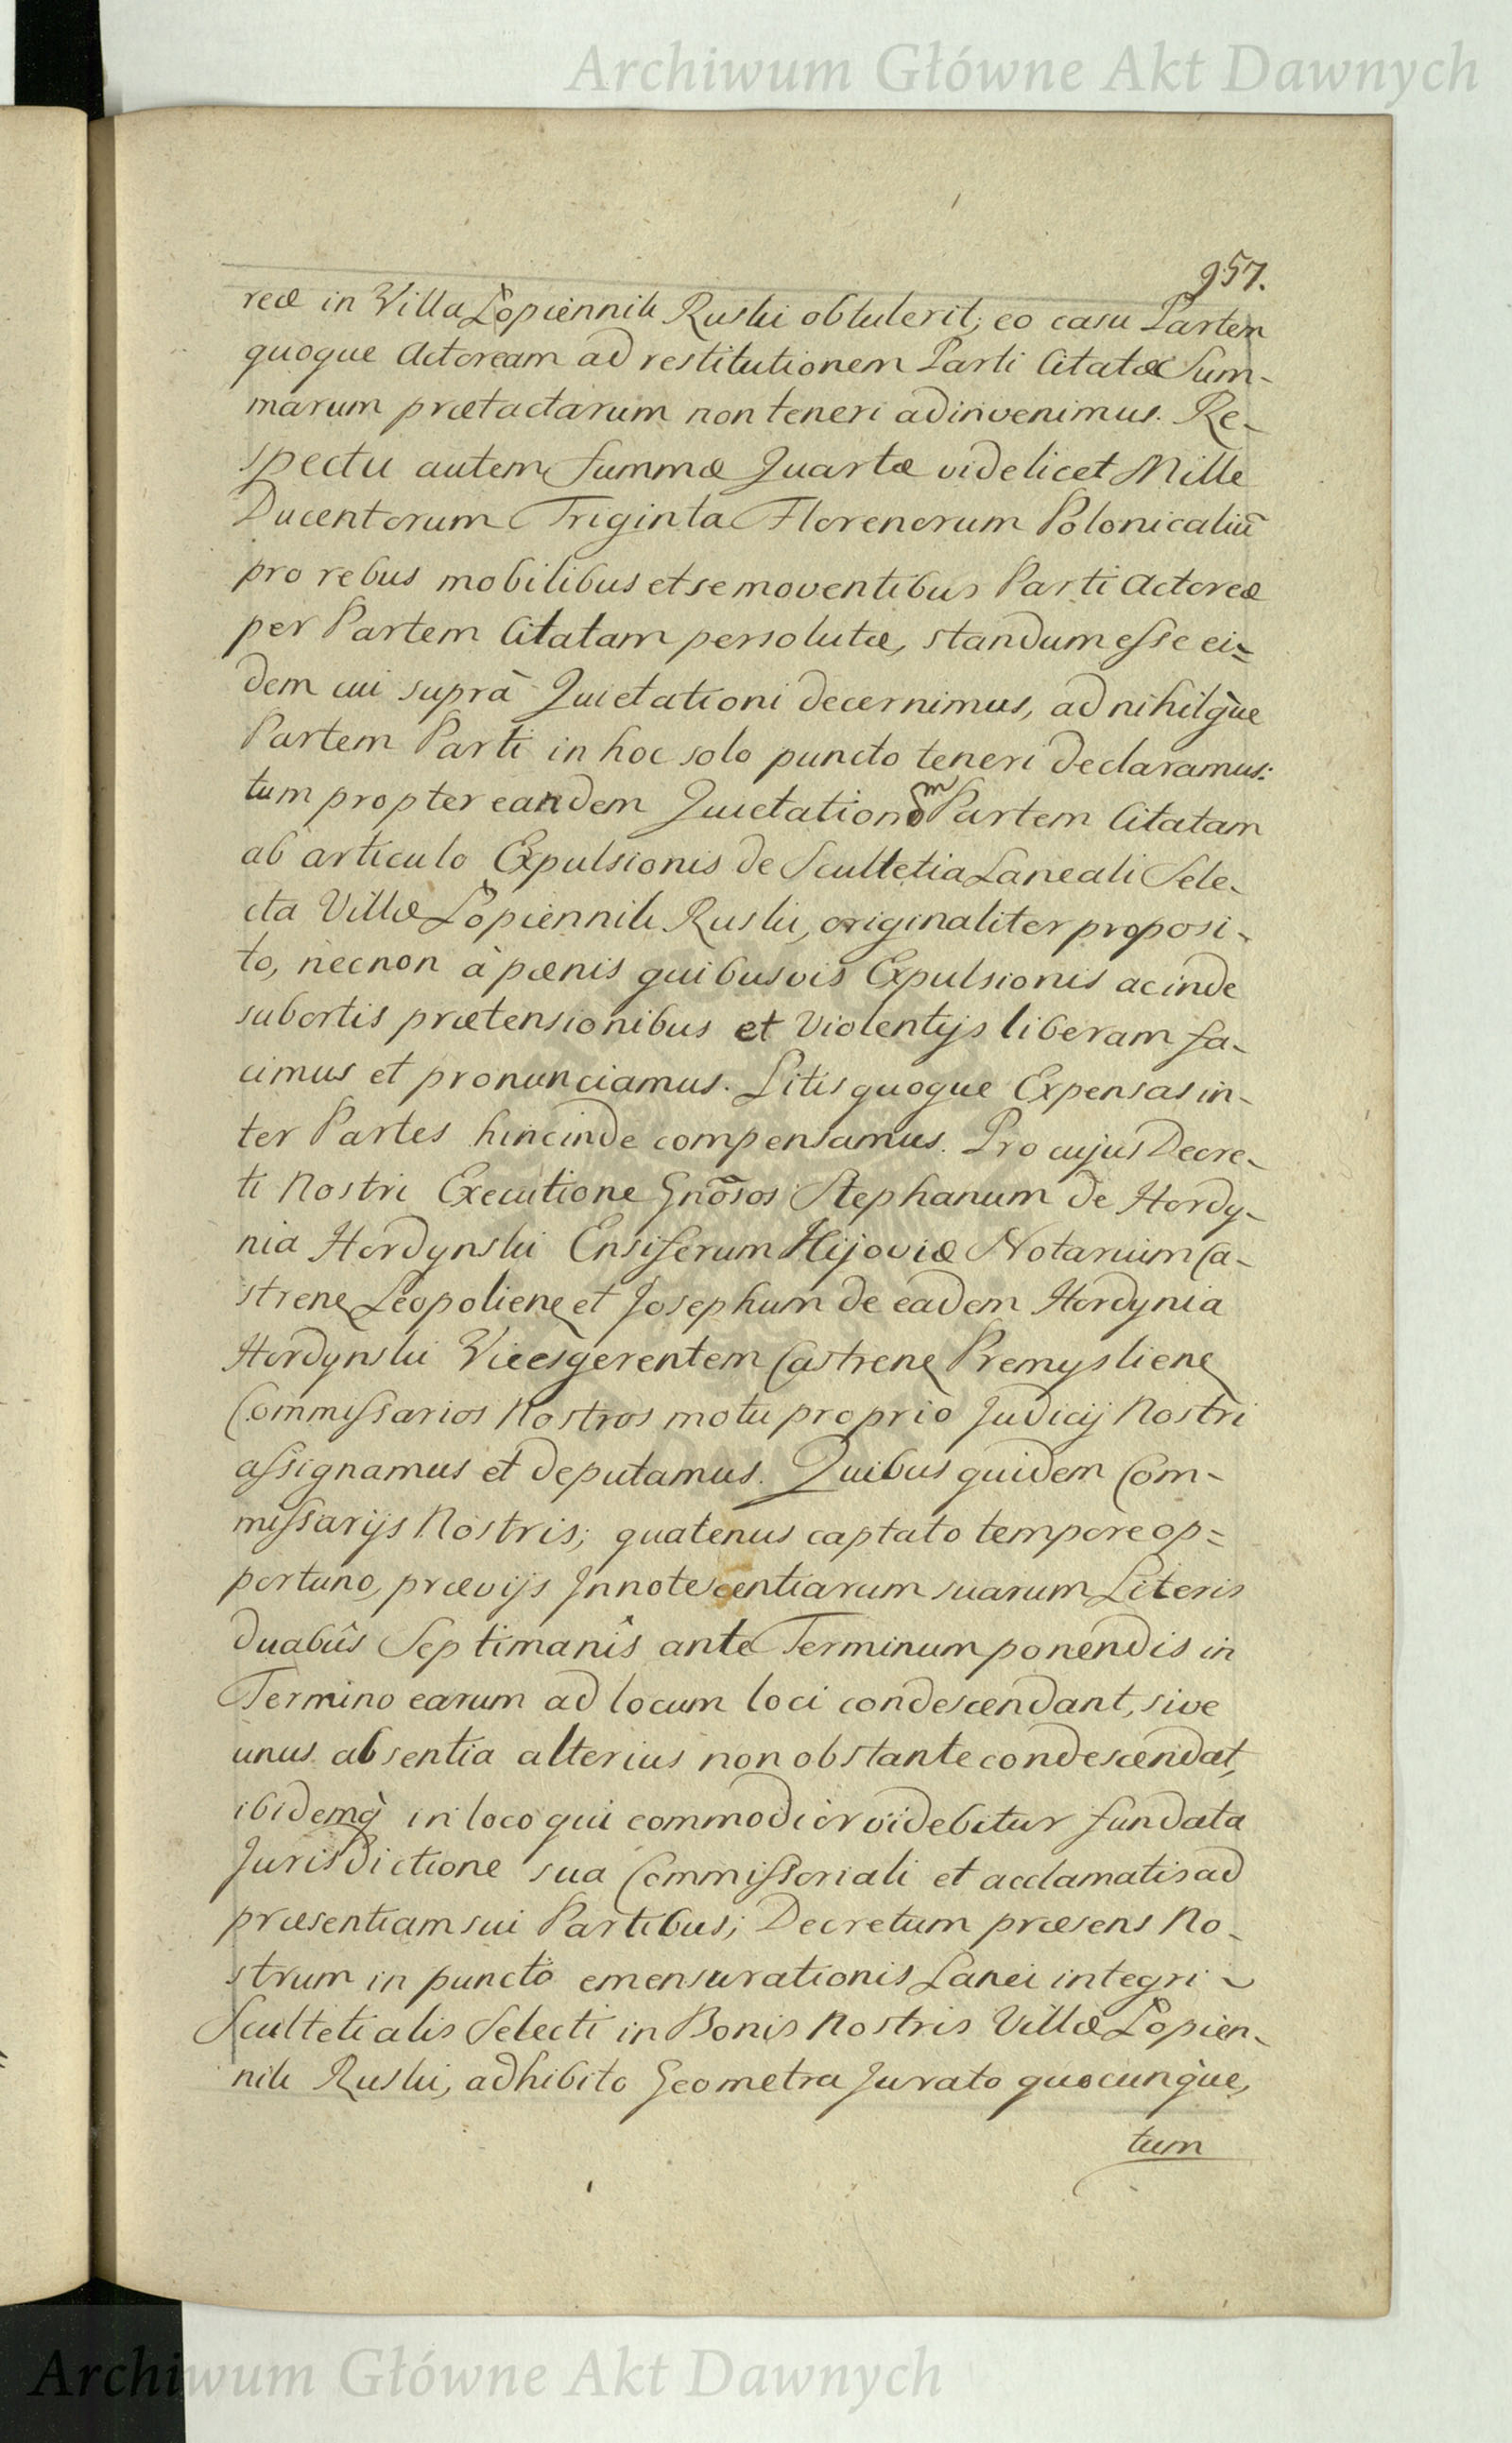 Archiwum Główne Akt Dawnych
957.
reæ in Villa Łopiennik Ruski obtulerit; eo casu Partem
quoque Actoream ad restitutionem Parti Citatæ Sum-
marum prætactarum non teneri adinvenimus. Re-
spectu autem Summæ Quartæ videlicet Mille
Ducentorum Triginta Florenorum Polonicaliũ
pro rebus mobilibus et se moventibus Parti Actoreæ
per Partem Citatam persolutæ, standum esse ei=
dem cui suprà Quietationi decernimus, ad nihilq̀ue
Partem Parti in hoc solo puncto teneri declaramus:
tum propter eandem Quietationem Partem Citatam
ab articulo Expulsionis de Scultetia Laneali Sele-
cta Villæ Łopiennik Ruski, originaliter proposi-
to, necnon à pœnis quibusvis Expulsionis ac inde
subortis prætensionibus et Violentijs liberam fa-
cimus et pronunciamus. Litis quoque Expensas in-
ter Partes hincinde compensamus. Pro cujus Decre-
ti Nostri Executione Gnõsos Stephanum de Hordy-
nia Hordynski Ensiferum Kijoviæ Notarium Ca-
strenę Leopolienę et Josephum de eadem Hordynia
Hordynski Vicesgerentem Castrenę Premyslienę
Commissarios Nostros motu proprio Judicij Nostri
assignamus et deputamus. Quibus quidem Com-
missarijs Nostris; quatenus captato tempore op=
portuno, prævijs Innotescentiarum suarum Literis
duabûs Septimanîs ante Terminum ponendis in
Termino earum ad locum loci condescendant, sive
unus absentia alterius non obstante condescendat,
ibidemq̀ in loco qui commodior videbitur fundata
Jurisdictione sua Commissoriali et acclamatis ad
præsentiam sui Partibus; Decretum præsens No-
strum in puncto emensurationis Lanei integri
Scultetialis Selecti in Bonis Nostris Villæ Łopien-
nik Ruski, adhibito Geometra Jurato quocunq̀ue,
tum
Archiwum Główne Akt Dawnych